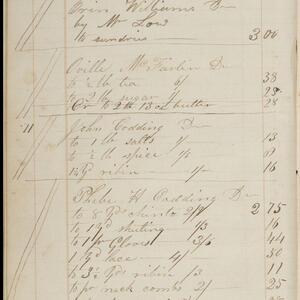 Orin Williams Dr
by Mr Low
to sundries 3 00
Orille McFarlin Dr
to ½ lb tea 6/ 38
to 2 lb sugar 1/ 28
Cr to 2 lb 13 oz butter 28
11 John Codding Dr
to 1 lb salts 1/ 13
to ½ lb spice 1/ 8
1½ yd ribin 1/ 16
Phebe H Codding Dr
to 8 yd chints 2/ 2 75
to 1 yd shuting 1/ 16
to 1 pr Gloves 3/6 44
yd lace 4/ 50
to 3½ yd ribin 1/3 11
to pr neck combs 2/ 25